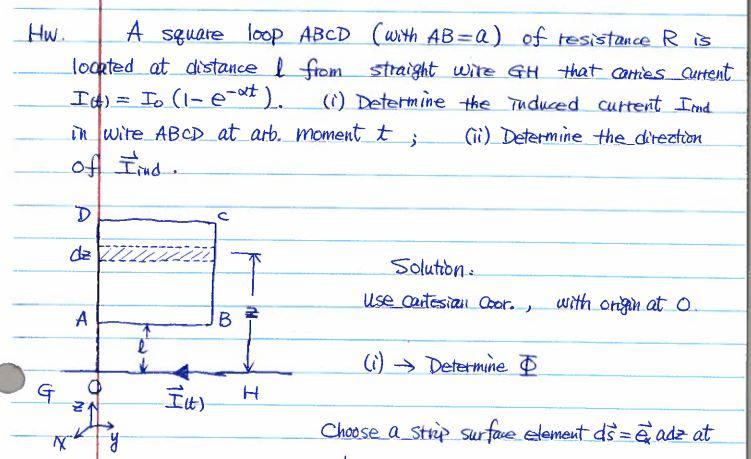 Hw. A square loop ABCD (with AB=a) of resistance R is
located at distance l from straight wire GH that carries current
I(t) = I₀ (1- e^-αt). (i) Determine the induced current Iind
in wire ABCD at arb. moment t ; (ii) Determine the direction
of I⃗ind.
D C
dz
Solution:
z
Use cartesian coor., with origin at O.
A B
l
(i) → Determine Φ
G O I⃗(t) H
z
x y
Choose a strip surface element ds⃗ = e⃗ₓ adz at